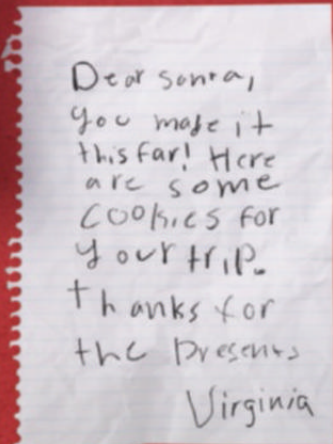 Dear santa,
you made it
this far! Here
are some
cookies for
your trip.
thanks for
the presents
Virginia